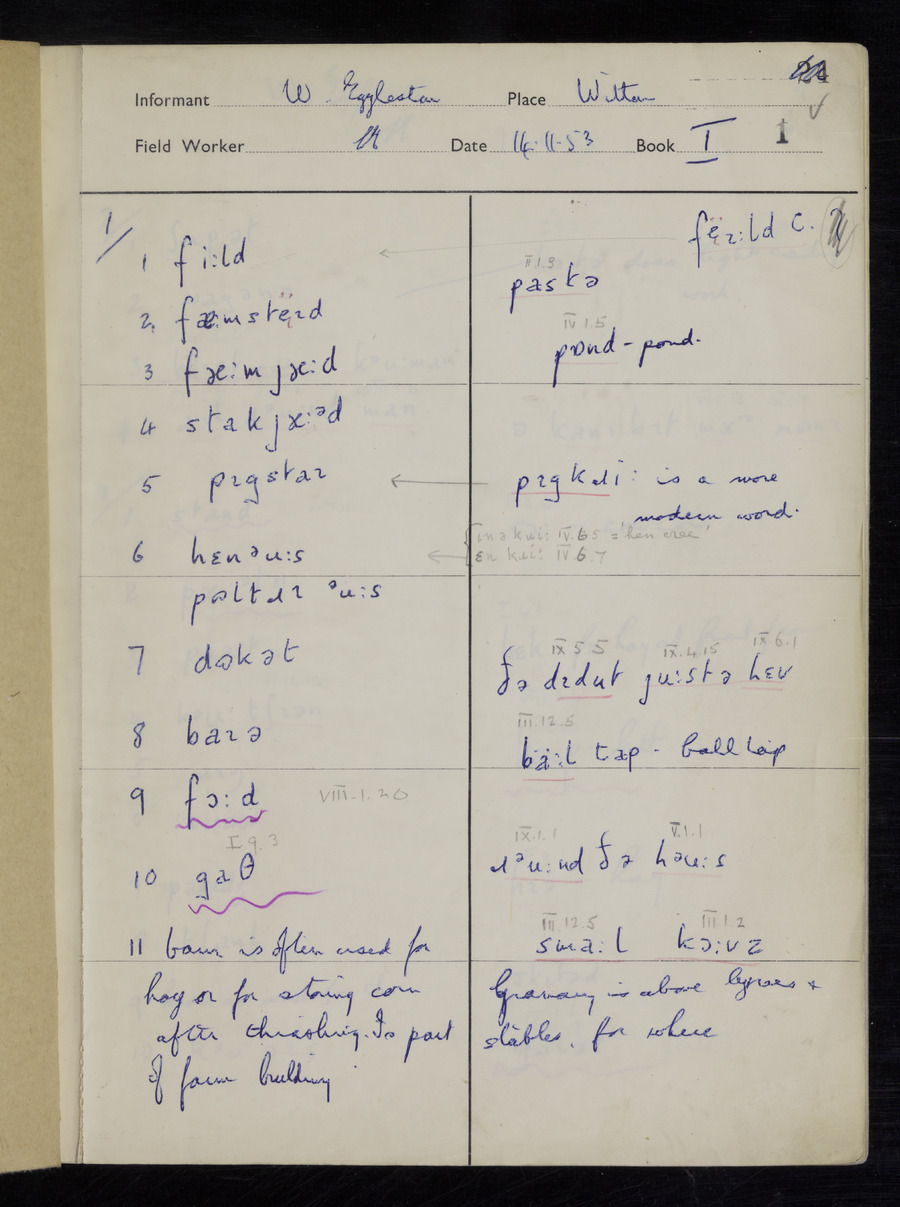 Informant W. Eggleston Place Witton
Field Worker Date 14.11.53 Book I 1
1/
1 fi:ld
2
3 fæ:m jæ:d
4 stakjæ:ᵊd
5 pɪgstaɪ
6 hɛnᵊu:s
ᵊu:s
7 dɵkət
8 baɪə
9 fɔ:d VIII.1.20
I.9.3
10 gaθ
11 barn is often used for
hay or for storing corn
after thrashing. Is part
of farm building
fëɪ:ld C.
II.1.3
pastə
IV.1.5
pɒnd - pond.
is a more
modern word.
IV.6.5 = 'hen cree'
ɛn IV.6.7
IX 5 5 IX.4.15 IX 6.1
ðə dɪdut ju:stə hɛv
III.12.5
tap - ball tap
IX.1.1 V.1.1
ðə həu:s
III.12.5 III.1.2
sma:l kɔ:vz
Granary is above byres +
stables. for where